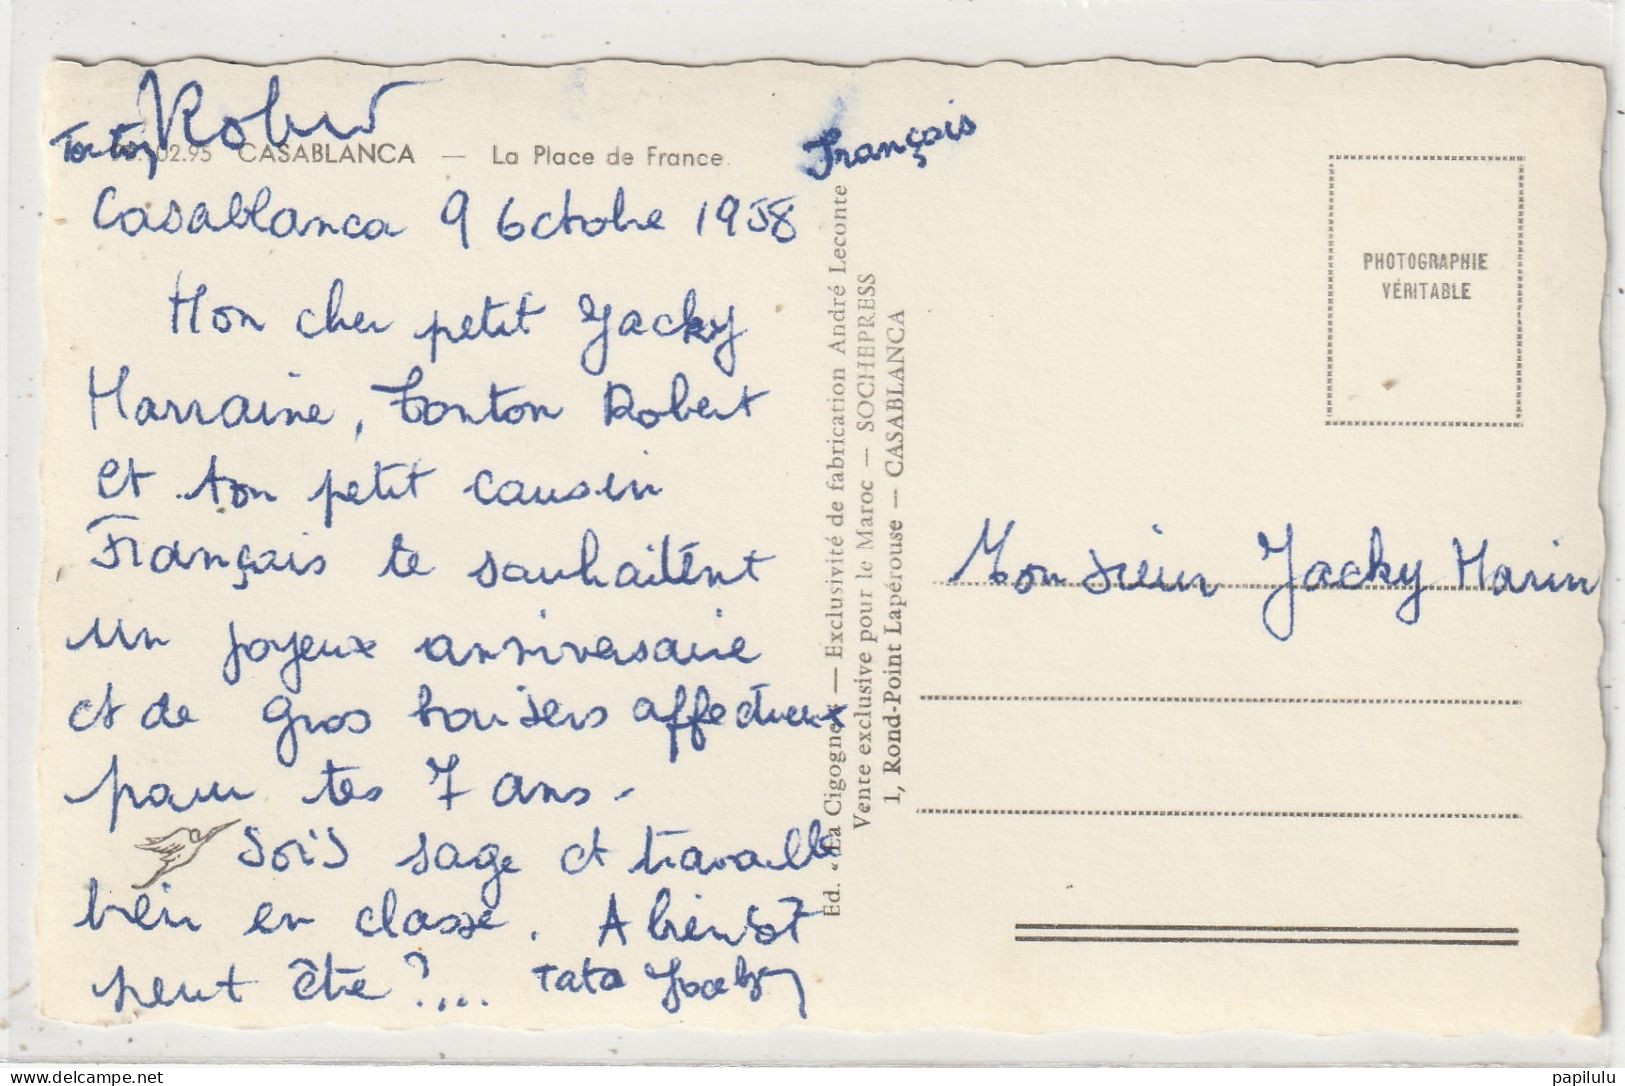 Tonton Robert
02.95 CASABLANCA — La Place de France
François
Casablanca 9 Octobre 1958
Mon cher petit Jacky
Marraine, Tonton Robert
et ton petit cousin
François te souhaitent
un joyeux anniversaire
et de gros baisers affectueux
pour tes 7 ans.
Sois sage et travaille
bien en classe. A bientôt
peut être ?....
Tata
Ed. « La Cigogne » — Exclusivité de fabrication André Leconte
Vente exclusive pour le Maroc — SOCHEPRESS
1, Rond-Point Lapérouse — CASABLANCA
PHOTOGRAPHIE
VÉRITABLE
Monsieur Jacky Marin
papilulu